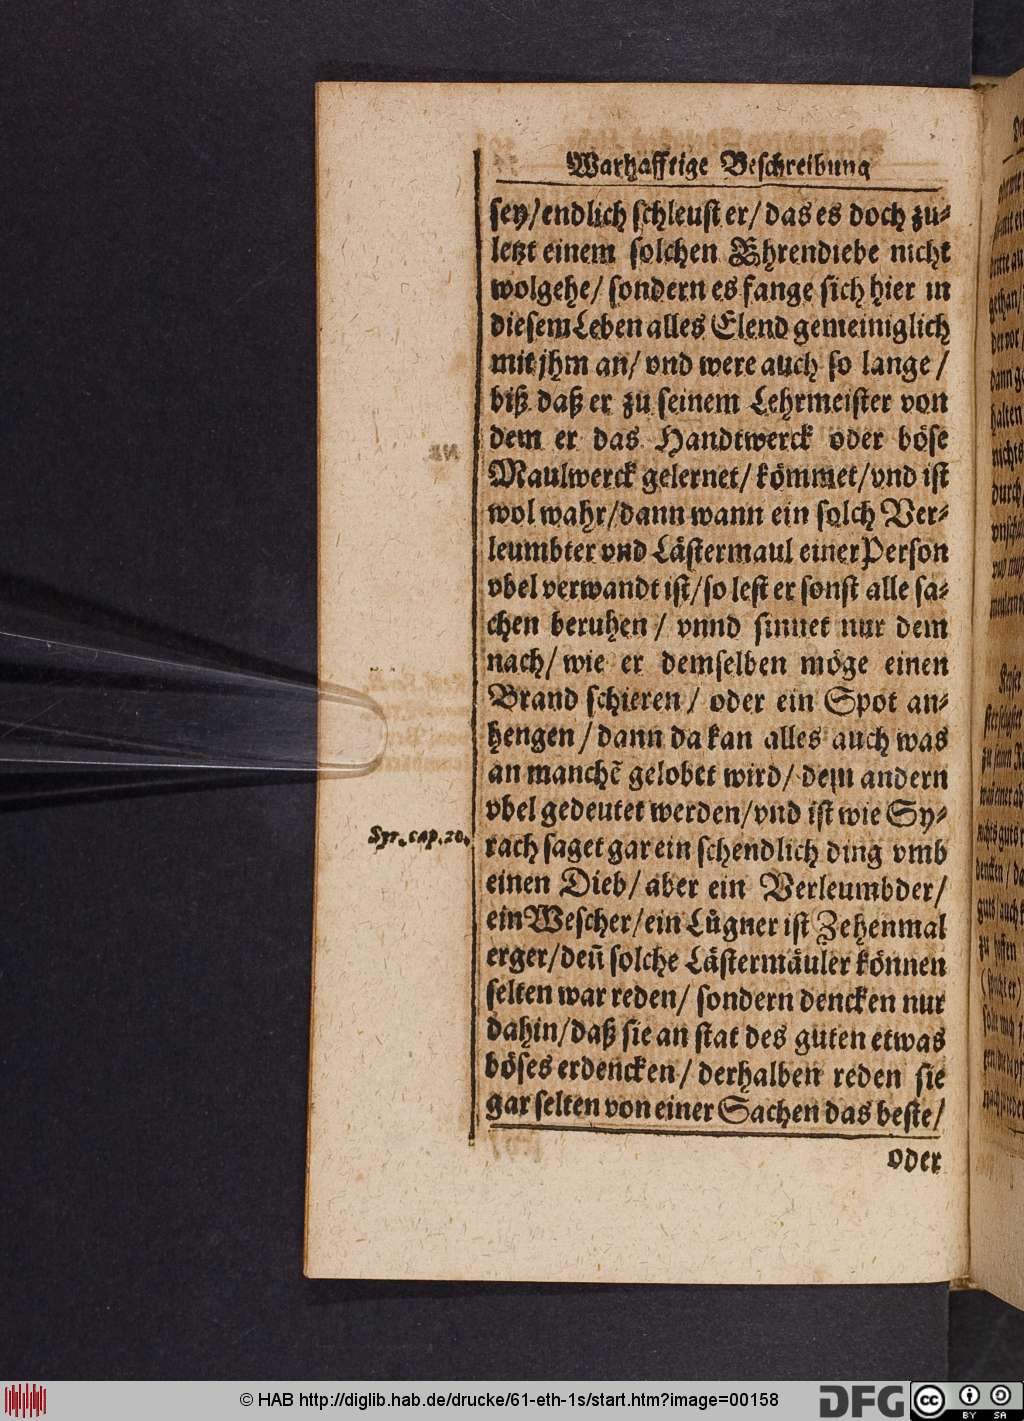 Warhafftige Beschreibung
sey/endlich schleust er/ das es doch zu-
letzt einem solchen Ehrendiebe nicht
wolgehe/ sondern es fange sich hier in
diesem Leben alles Elend gemeiniglich
mit jhm an/ vnd were auch so lange/
biß daß er zu seinem Lehrmeister von
dem er das Handtwerck oder böse
Maulwerck gelernet/ kömmet/vnd ist
wol wahr/dann wann ein solch Ver-
leumbter vnd Lästermaul einer Person
vbel verwandt ist/so lest er sonst alle sa-
chen beruhen/ vnnd sinnet nur dem
nach/ wie er demselben möge einen
Brand schieren/ oder ein Spot an-
hengen/ dann da kan alles auch was
an manchē gelobet wird/ dem andern
vbel gedeutet werden/vnd ist wie Sy-
Syr. cap. 20.
rach saget gar ein schendlich ding vmb
einen Dieb/ aber ein Verleumbder/
ein Wescher/ein Lügner ist Zehenmal
erger/deñ solche Lästermäuler können
selten war reden/ sondern dencken nur
dahin/daß sie an stat des guten etwas
böses erdencken/ derhalben reden sie
gar selten von einer Sachen das beste/
oder
© HAB http://diglib.hab.de/drucke/61-eth-1s/start.htm?image=00158
DFG
cc
BY SA